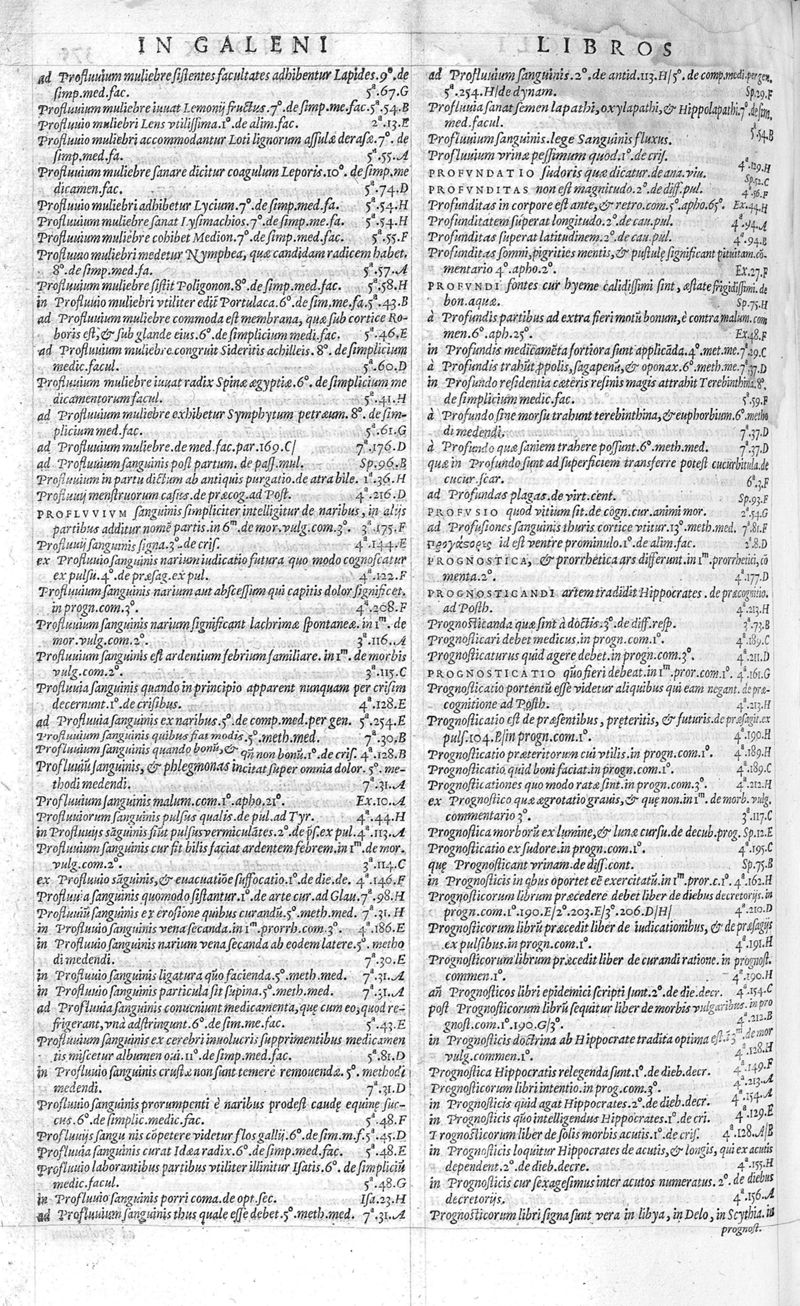 IN GALENI
ad Profluuium muliebre sistentes facultates adhibentur Lapides. 9°. de
simp. med. fac. 5ª. 67. G
Profluuium muliebre iuuat Lemonij fructus. 7°. de simp. me. fac. 5ª. 54. B
Profluuio muliebri Lens vtilissima. 1°. de alim. fac. 2ª. 13. E
Profluuio muliebri accommodantur Loti lignorum assulæ derasæ. 7°. de
simp. med. fa. 5ª. 55. A
Profluuium muliebre sanare dicitur coagulum Leporis. 10°. de simp. me
dicamen. fac. 5ª. 74. D
Profluuio muliebri adhibetur Lycium. 7°. de simp. med. fa. 5ª. 54. H
Profluuium muliebre sanat Lysimachios. 7°. de simp. me. fa. 5ª. 54. H
Profluuium muliebre cohibet Medion. 7°. de simp. med. fac. 5ª. 55. F
Profluuio muliebri medetur Nymphea, quæ candidam radicem habet.
8°. de simp. med. fa. 5ª. 57. A
Profluuium muliebre sistit Poligonon. 8°. de simp. med. fac. 5ª. 58. H
in Profluuio muliebri vtiliter edit̃ Portulaca. 6°. de sim. me. fa. 5ª. 43. B
ad Profluuium muliebre commoda est membrana, quæ sub cortice Ro-
boris est, & sub glande eius. 6°. de simplicium medi. fac. 5ª. 46. E
ad Profluuium muliebre congruit Sideritis achilleis. 8°. de simplicium
medic. facul. 5ª. 60. D
Profluuium muliebre iuuat radix Spinæ ægyptiæ. 6°. de simplicium me
dicamentorum facul. 5ª. 41. H
ad Profluuium muliebre exhibetur Symphytum petræum. 8°. de sim-
plicium med. fac. 5ª. 61. G
ad Profluuium muliebre. de med. fac. par. 169. C/ 7ª. 176. D
ad Profluuium sanguinis post partum. de pass. mul. Sp. 96. B
Profluuium in partu dictum ab antiquis purgatio. de atra bile. 1ª. 36. H
Profluuij menstruorum casus. de præcog. ad Post. 4ª. 216. D
PROFLVVIVM sanguinis simpliciter intelligitur de naribus, in alijs
partibus additur nomẽ partis. in 6m. de mor. vulg. com. 3°. 3ª. 175. F
Profluuij sanguinis signa. 3°. de cris. 4ª. 144. E
ex Profluuio sanguinis narium iudicatio futura quo modo cognoscatur
ex pulsu. 4°. de præsag. ex pul. 4ª. 122. F
Profluuium sanguinis narium aut abscessum qui capitis dolor significet.
in progn. com. 3°. 4ª. 208. F
Profluuium sanguinis narium significant lachrimæ spontaneæ. in 1m. de
mor. vulg. com. 2°. 3ª. 116. A
Profluuium sanguinis est ardentium febrium familiare. in 1m. de morbis
vulg. com. 2°. 3ª. 115. C
Profluuia sanguinis quando in principio apparent nunquam per crisim
decernunt. 1°. de crisibus. 4ª. 128. E
ad Profluuia sanguinis ex naribus. 5°. de comp. med. per gen. 5ª. 254. E
Profluuium sanguinis quibus fiat modis. 5°. meth. med. 7ª. 30. B
Profluuium sanguinis quando bonũ, & qñ non bonũ. 1°. de cris. 4ª. 128. B
Profluuiũ sanguinis, & phlegmonas incitat super omnia dolor. 5°. me-
thodi medendi. 7ª. 31. A
Profluuium sanguinis malum. com. 1°. apho. 21°. Ex. 10. A
Profluuiorum sanguinis pulsus qualis. de pul. ad Tyr. 4ª. 44. H
in Profluuijs sãguinis fiũt pulsus vermiculãtes. 2°. de p̃s. ex pul. 4ª. 113. A
Profluuium sanguinis cur fit bilis faciat ardentem febrem. in 1m. de mor.
vulg. com. 2°. 3ª. 114. C
ex Profluuio sãguinis, & euacuatiõe suffocatio. 1°. de die. de. 4ª. 146. F
Profluuia sanguinis quomodo sistantur. 1°. de arte cur. ad Glau. 7ª. 98. H
Profluuiũ sanguinis ex erosione quibus curandũ. 5°. meth. med. 7ª. 31. H
in Profluuio sanguinis vena secanda. in 1m. prorrh. com. 3°. 4ª. 186. E
in Profluuio sanguinis narium vena secanda ab eodem latere. 5°. metho
di medendi. 7ª. 30. E
in Profluuio sanguinis ligatura quõ facienda. 5°. meth. med. 7ª. 31. A
in Profluuio sanguinis particula sit supina. 5°. meth. med. 7ª. 31. A
ad Profluuium sanguinis conueniunt medicamenta, quę cum eo, quod re-
frigerant, vnà adstringunt. 6°. de sim. me. fac. 5ª. 43. E
Profluuium sanguinis ex cerebri inuolucris supprimentibus medicamen
tis miscetur albumen oui. 11°. de simp. med. fac. 5ª. 81. D
in Profluuio sanguinis crustæ non sunt temerè remouendæ. 5°. methodi
medendi. 7ª. 31. D
Profluuio sanguinis prorumpenti è naribus prodest caudę equinę suc-
cus. 6°. de simplic. medic. fac. 5ª. 48. F
Profluuijs sangu nis cõpetere videtur flos gallij. 6°. de sim. m. f. 5ª. 45. D
Profluuia sanguinis curat Idæa radix. 6°. de simp. med. fac. 5ª. 48. E
Profluuio laborantibus partibus vtiliter illinitur Isatis. 6°. de simpliciũ
medic. facul. 5ª. 48. G
in Profluuio sanguinis porri coma. de opt. sec. Isa. 23. H
ad Profluuium sanguinis thus quale esse debet. 5°. meth. med. 7ª. 31. A
LIBROS
ad Profluuium sanguinis. 2°. de antid. 113. H/ 5°. de comp. medi. per gen.
5ª. 254. H/ de dynam. Sp. 29. F
Profluuia sanat semen lapathi, oxylapathi, & Hippolapathi. 7°. de sim.
med. facul. 5ª. 54. B
Profluuium sanguinis. lege Sanguinis fluxus.
Profluuium vrinæ pessimum quòd. 1°. de cris. 4ª. 129. H
PROFVNDATIO sudoris quæ dicatur. de ana. viu. Sp. 52. C
PROFVNDITAS non est magnitudo. 2°. de diff. pul. 4ª. 56. F
Profunditas in corpore est ante, & retro. com. 5°. apho. 65°. Ex. 44. H
Profunditatem superat longitudo. 2°. de cau. pul. 4ª. 94. A
Profunditas superat latitudinem. 2°. de cau. pul. 4ª. 94. B
Profunditas somni, pigrities mentis, & pustulę significant pituitam. cõ-
mentario 4°. apho. 2°. Ex. 27. F
PROFVNDI fontes cur hyeme calidissimi sint, æstate frigidissimi. de
bon. aquæ. Sp. 75. H
à Profundis partibus ad extra fieri motũ bonum, è contra malum. com
men. 6°. aph. 25°. Ex. 48. F
in Profundis medicamẽta fortiora sunt applicãda. 4°. met. me. 7ª. 29. C
à Profundis trahũt p̃polis, sagapenũ, & oponax. 6°. meth. me. 7ª. 37. D
in Profundo residentia cæteris resinis magis attrahit Terebinthina. 8°.
de simplicium medic. fac. 5ª. 59. F
à Profundo sine morsu trahunt terebinthina, & euphorbium. 6°. metho
di medendi. 7ª. 37. D
à Profundo quæ saniem trahere possunt. 6°. meth. med. 7ª. 37. D
quæ in Profundo sunt ad superficiem transferre potest cucurbitula. de
cucur. scar. 6ª. 3. F
ad Profundas plagas. de virt. cent. Sp. 93. F
PROFVSIO quod vitium sit. de cogn. cur. animi mor. 2ª. 54. G
ad Profusiones sanguinis thuris cortice vtitur. 13°. meth. med. 7ª. 81. F
προγάστορες id est ventre prominulo. 1°. de alim. fac. 2ª. 8. D
PROGNOSTICA, & prorrhetica ars differunt. in 1m. prorrhetici, cõ
menta. 2°. 4ª. 177. D
PROGNOSTICANDI artem tradidit Hippocrates. de præcognitio.
ad Posth. 4ª. 213. H
Prognosticanda quæ sint à doctis. 3°. de diff. resp. 3ª. 73. B
Prognosticari debet medicus. in progn. com. 1°. 4ª. 189. C
Prognosticaturus quid agere debet. in progn. com. 3°. 4ª. 211. D
PROGNOSTICATIO quo fieri debeat. in 1m. pror. com. 1°. 4ª. 161. G
Prognosticatio portentũ esse videtur aliquibus qui eam negant. de præ-
cognitione ad Posth. 4ª. 213. H
Prognosticatio est de præsentibus, preteritis, & futuris. de præsagit. ex
puls. 104. E/ in progn. com. 1°. 4ª. 190. H
Prognosticatio præteritorum cui vtilis. in progn. com. 1°. 4ª. 189. H
Prognosticatio quid boni faciat. in progn. com. 1°. 4ª. 189. C
Prognosticationes quo modo ratæ sint. in progn. com. 3°. 4ª. 212. H
ex Prognostico quæ ægrotatio grauis, & quę non. in 1m. de morb. vulg.
commentario 3°. 3ª. 117. C
Prognostica morborũ ex lumine, & lunæ cursu. de decub. prog. Sp. 12. E
Prognosticatio ex sudore. in progn. com. 1°. 4ª. 195. C
quę Prognosticant vrinam. de diss. cont. Sp. 75. B
in Prognosticis in qbus oportet eẽ exercitatũ. in 1m. pror. c. 1°. 4ª. 162. H
Prognosticorum librum præcedere debet liber de diebus decretorijs. in
progn. com. 1°. 190. E/ 2°. 203. E/ 3°. 206. D/ H/ 4ª. 210. D
Prognosticorum librũ præcedit liber de iudicationibus, & de præsagijs
ex pulsibus. in progn. com. 1°. 4ª. 191. H
Prognosticorum librum præcedit liber de curandi ratione. in prognost.
commen. 1°. 4ª. 190. H
añ Prognosticos libri epidemici scripti sunt. 2°. de die. decr. 4ª. 154. C
post Prognosticorum librũ sequitur liber de morbis vulgaribus. in pro
gnost. com. 1°. 190. G/ 3°. 4ª. 212. B
in Prognosticis doctrina ab Hippocrate tradita optima est. 3m. de mor
vulg. commen. 1°. 4ª. 128. H
Prognostica Hippocratis relegenda sunt. 1°. de dieb. decr. 4ª. 149. F
Prognosticorum libri intentio. in prog. com. 3°. 4ª. 213. A
in Prognosticis quid agat Hippocrates. 2°. de dieb. decr. 4ª. 154. A
in Prognosticis quo intelligendus Hippocrates. 1°. de cri. 4ª. 129. E
Prognosticorum liber de solis morbis acutis. 1°. de cris. 4ª. 128. A/B
in Prognosticis loquitur Hippocrates de acutis, & longis, qui ex acutis
dependent. 2°. de dieb. decre. 4ª. 155. H
in Prognosticis cur sexagesimus inter acutos numeratus. 2°. de diebus
decretorijs. 4ª. 156. A
Prognosticorum libri signa sunt vera in libya, in Delo, in Scythia. in
prognost.